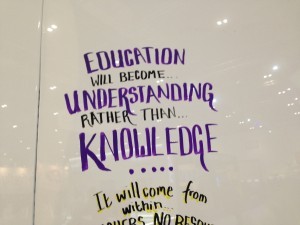 EDUCATION
WILL BECOME...
UNDERSTANDING
RATHER THAN...
KNOWLEDGE
.....
It will come from
within...
NO